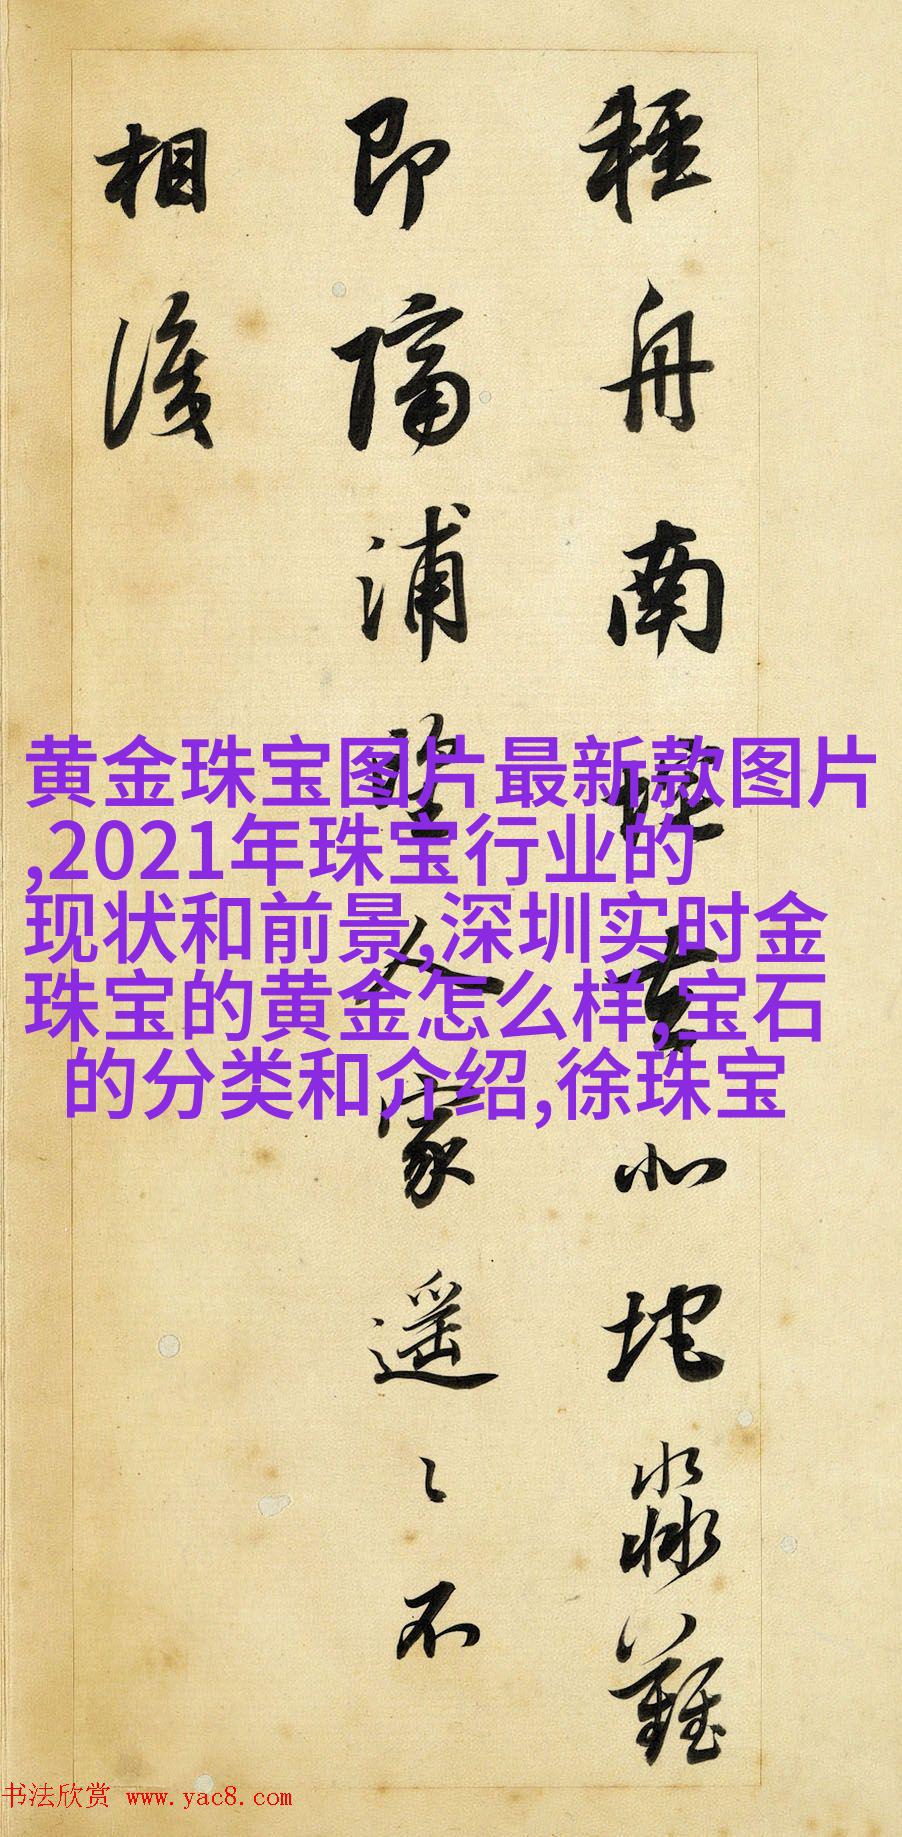 輕舟南垞去北垞淼難
即隔浦望人家遥〻不
相識
黄金珠宝图片最新款图片
,2021年珠宝行业的
现状和前景,深圳实时金
珠宝的黄金怎么样,宝石
的分类和介绍,徐珠宝
书法欣赏 www.yac8.com